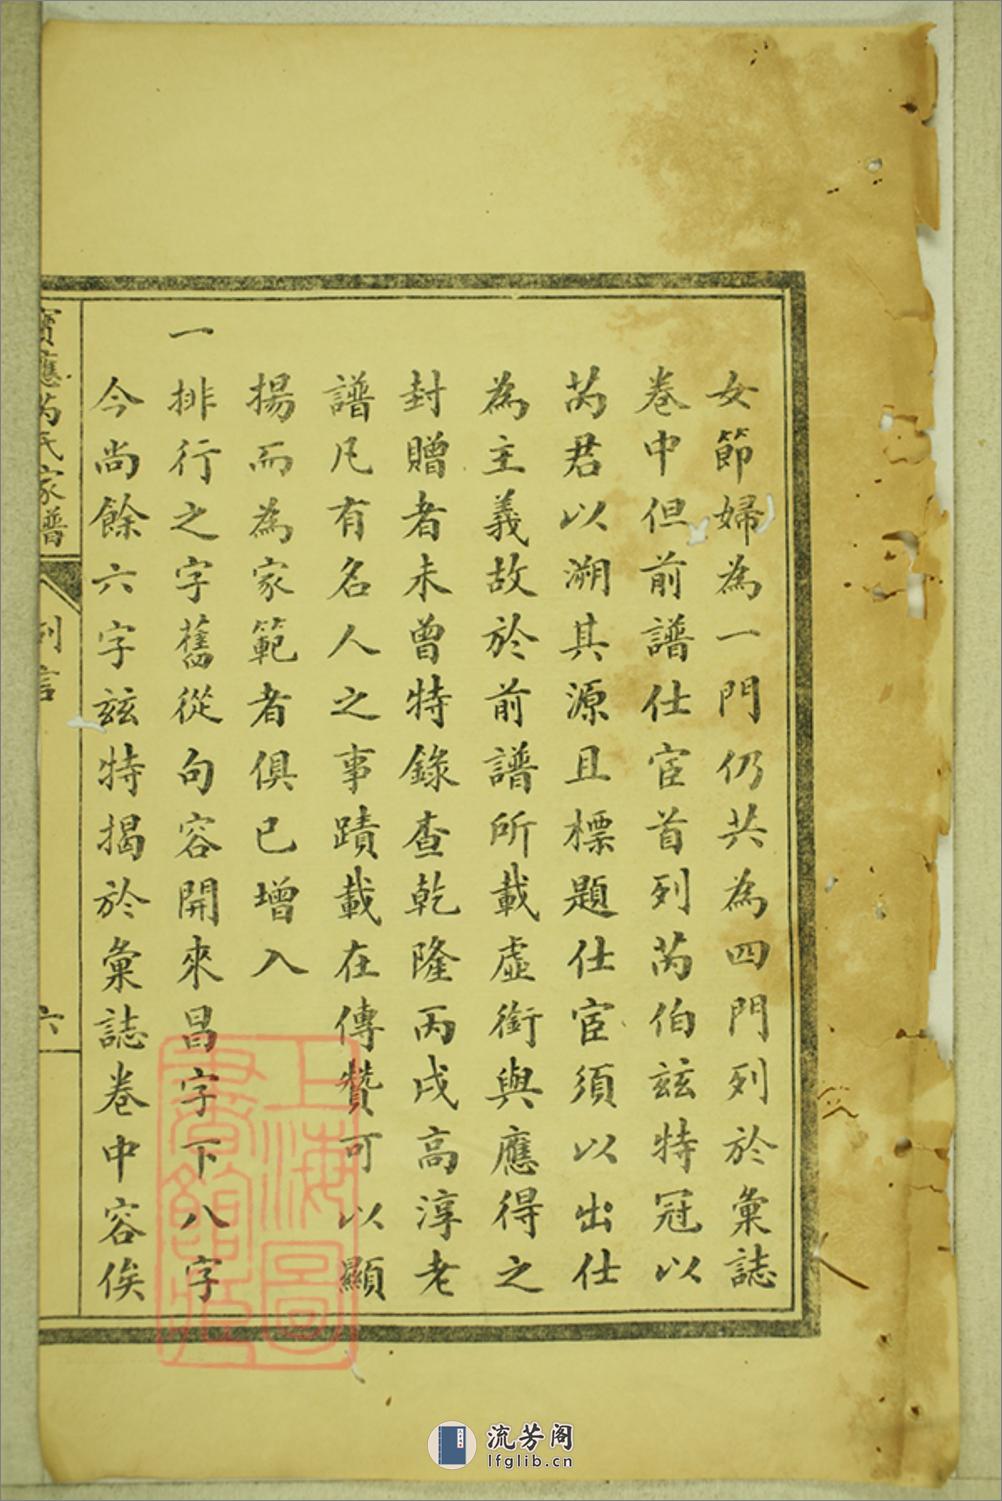 女節婦為一門仍共為四門列於彙誌
卷中但前譜仕宦首列芮伯茲特冠以
芮君以溯其源且標題仕宦須以出仕
為主義故於前譜所載虛銜與應得之
封贈者未曾特錄查乾隆丙戌高淳老
譜凡有名人之事蹟載在傳贊可以顯
揚而為家範者俱已增入
一排行之字舊從句容開來昌字下八字
今尚餘六字茲特揭於彙誌卷中容俟
寶應芮氏家譜 例言 六
上海圖書館藏
流芳阁
lfglib.cn